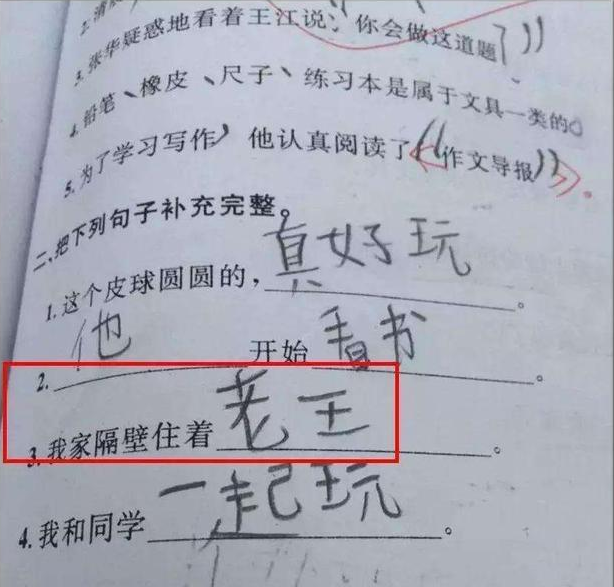 3. 张华疑惑地看着王江说:“你会做这道题?”
4. 铅笔、橡皮、尺子、练习本是属于文具一类的。
5. 为了学习写作,他认真阅读了《作文导报》。
二、把下列句子补充完整。
1. 这个皮球圆圆的,真好玩。
2. 他开始看书。
3. 我家隔壁住着老王。
4. 我和同学一起玩。